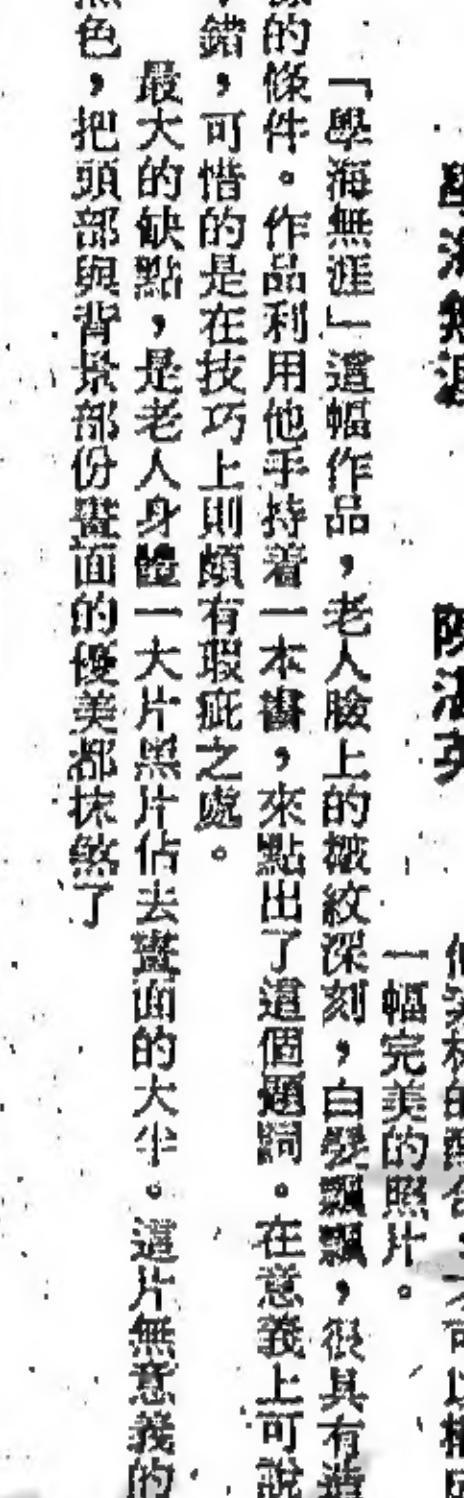 學海無涯 陳淑英
一幅完美的照片。
「學海無涯」這幅作品，老人臉上的皺紋深刻，白髮飄飄，很具有造
的條件。作品利用他手持着一本書，來點出了這個題詞。在意義上可說
錯，可惜的是在技巧上則頗有瑕疵之處。
最大的缺點，是老人身體一大片黑片佔去畫面的大半。這片無意義的
色，把頭部與背景部份畫面的優美都抹煞了